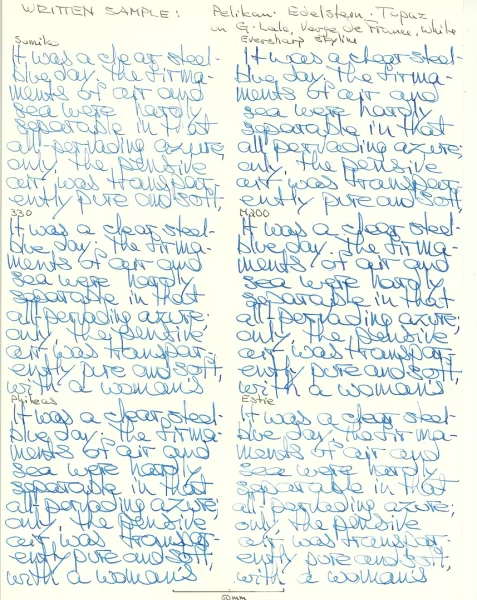 WRITTEN SAMPLE: Pelikan. Edelstein. Topaz
on G. Lalo, Verge de France, White
Somiko
It was a clear steel-
blue day. the firma-
ments of air and
sea were hardly
separable in that
all-pervading azure;
only, the pensive
air was transpar-
ently pure and soft,
Eversharp Skyline
It was a clear steel-
blue day. the firma-
ments of air and
sea were hardly
separable in that
all-pervading azure;
only, the pensive
air was transpar-
ently pure and soft,
330
It was a clear steel-
blue day. the firma-
ments of air and
sea were hardly
separable in that
all-pervading azure;
only, the pensive
air was transpar-
ently pure and soft,
with a woman's
M200
It was a clear steel-
blue day. the firma-
ments of air and
sea were hardly
separable in that
all-pervading azure;
only, the pensive
air was transpar-
ently pure and soft,
with a woman's
Phileas
It was a clear steel-
blue day. the firma-
ments of air and
sea were hardly
separable in that
all-pervading azure;
only, the pensive
air was transpar-
ently pure and soft,
with a woman's
Estie
It was a clear steel-
blue day. the firma-
ments of air and
sea were hardly
separable in that
all-pervading azure;
only, the pensive
air was transpar-
ently pure and soft,
with a woman's
50mm